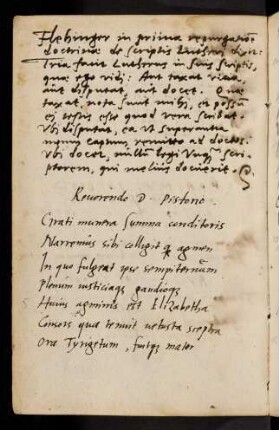 Flehinger in prima repurgation
doctrinae de scriptis Lutheri dixit:
Tria facit Lutherus in suis scriptis,
quae ego vidi: Aut taxat vicia,
aut disputat, aut docet. Quae
taxat, nota sunt mihi, et possum
ei testis esse quod vera scribat.
Ubi disputat, ea ut superantia
meum captum, remitto ad doctos.
Ubi docet, nullum legi unquam scri-
ptorem, qui melius docuerit.
Reuerendo D. Pistorio.
Grati munera summa conditoris
Narremus sibi colligit qd agmen
In quo fulgeat ipse sempiternum
Plenum iusticiaque gaudioque
Huius agminis est Elizabetha
Consors quae tenuit uetusta sceptra
Ora Tyngetum, fuitque mater